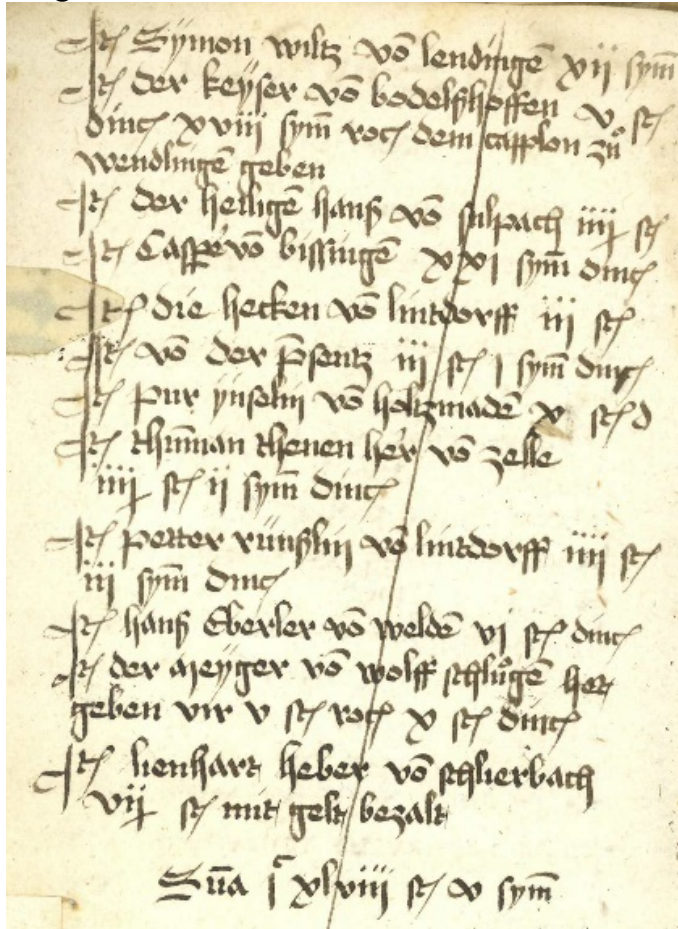 Itē Symon wiltz vō lendingē xij sym̄
Itē der keyser vō bodelßhoffen v sch
dinck xviij sym̄ rock dem capplon zů
wendlingē geben
Itē der heiligē hanß vō sulpach iiij sch
Itē Casp̄er vō bissingē xxj sym̄ dinck
Itē die hecken vō lintdorff iij sch
Itē vō der p̄sentz iij sch j sym̄ dinck
Itē pur vō holtzmadē x sch d
Itē her vō zelle
iiij sch ij sym̄ dinck
Itē petter vō lintdorff iiij sch
iij sym̄ dinck
Itē hanß Eberler vō weldē vj sch dinck
Itē der meyger vō wolff schlůgē het
geben vir v sch rock x sch dinck
Itē lienhart heber vō schlierbach
vij sch mit gelt bezalt
Sūa jc xlviij sch v sym̄